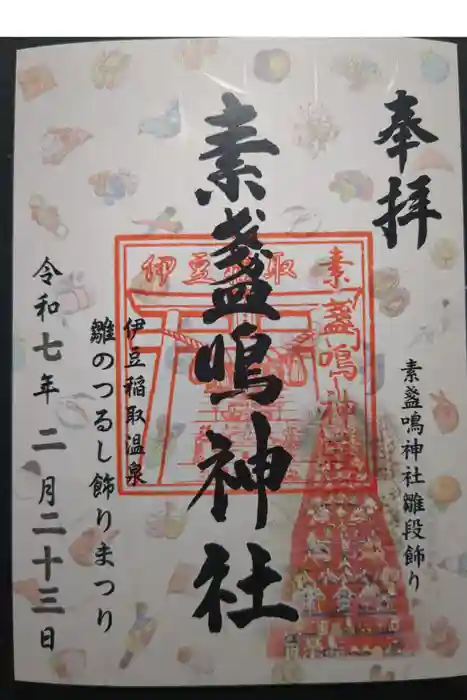 奉拝
素盞鳴神社雛段飾り
素盞鳴神社
素盞鳴神社
伊豆稲取
伊豆稲取温泉
雛のつるし飾りまつり
令和七年二月二十三日